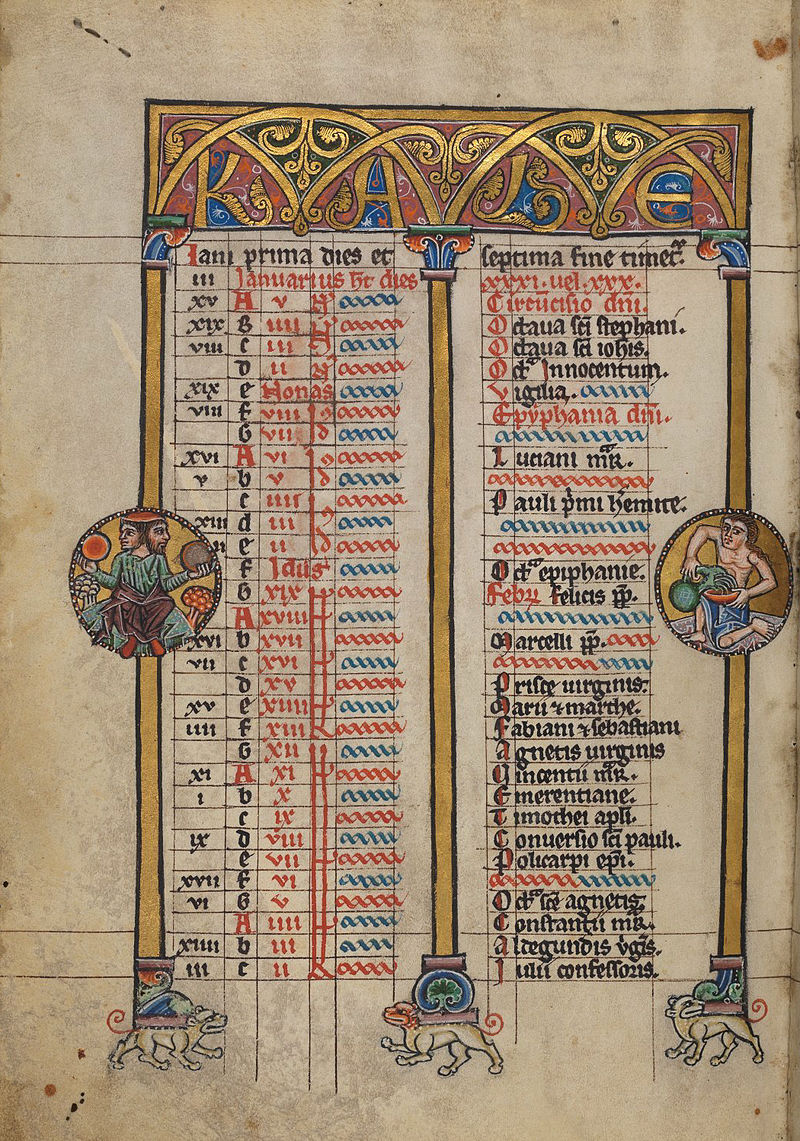 K A L E
Iani prima dies et septima fine timet᷑.
iii Januarius ht dies xxxi. uel. xxx.
xv A v Circūcisio dn̄i.
xix B iiii Octaua sc̄i stephani.
viii c iii Octaua sc̄i ioh̄is.
d ii Oct̄ Innocentum.
xix e Nonas Vigilia.
viii f viii Epyphania dn̄i.
G vii
xvi A vi Luciani mr̄.
v b v
c iiii Pauli p̄mi h̄emite.
xiii d iii
ii e ii
f Idus Oct̄ epiphanie.
G xix Febr̄ Felicis pp̄.
A xviii
xvi b xvii Marcelli pp̄.
vii c xvi
d xv Prisce uirginis.
xv e xiiii Marii ⁊ marthe.
iiii f xiii Fabiani ⁊ sebastiani
G xii Agnetis uirginis
xi A xi Vincentii mr̄.
i b x Emerentiane.
c ix Timothei apl̄i.
ix d viii Conuersio sc̄i pauli.
e vii Policarpi ep̄i.
xvii f vi
vi G v Oct̄ sc̄e agnetis.
A iiii Constantii mr̄.
xiiii b iii Aldegundis v̄gis.
iii c ii Iulii confessoris.